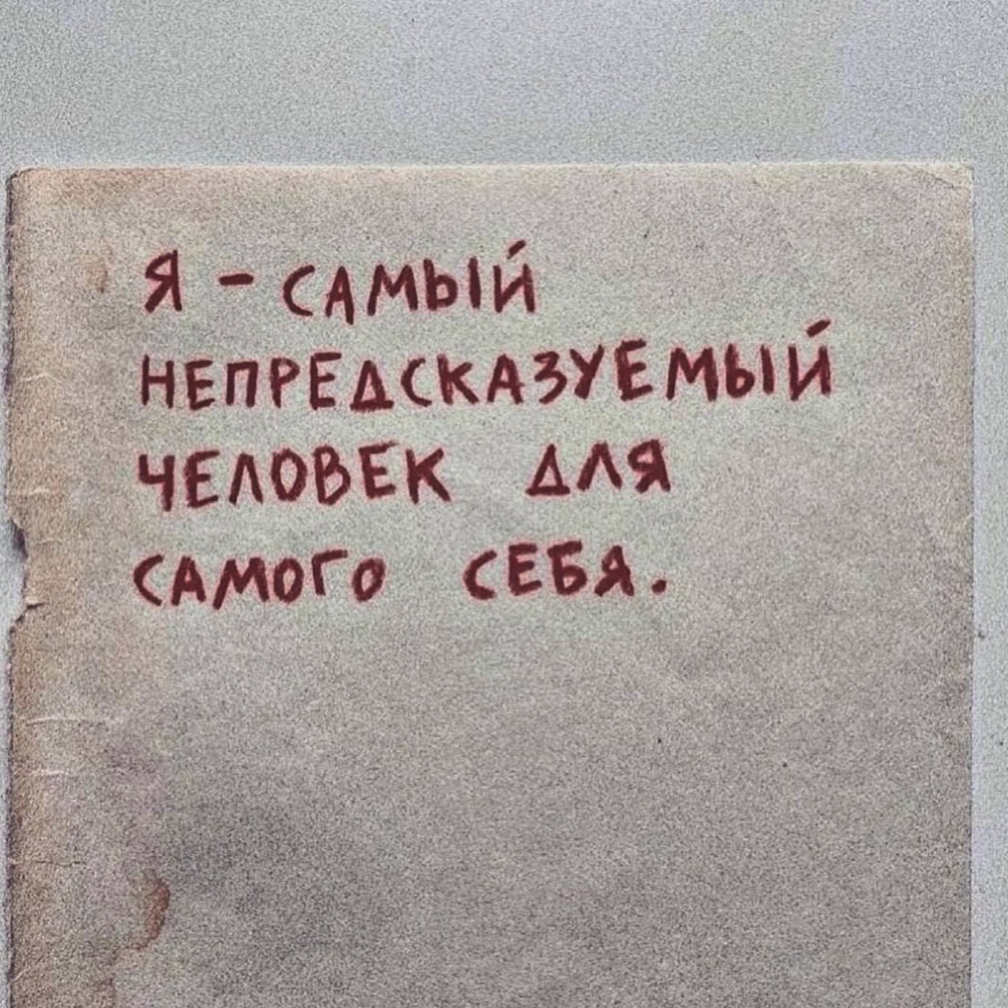 Я - САМЫЙ
НЕПРЕДСКАЗУЕМЫЙ
ЧЕЛОВЕК ДЛЯ
САМОГО СЕБЯ.